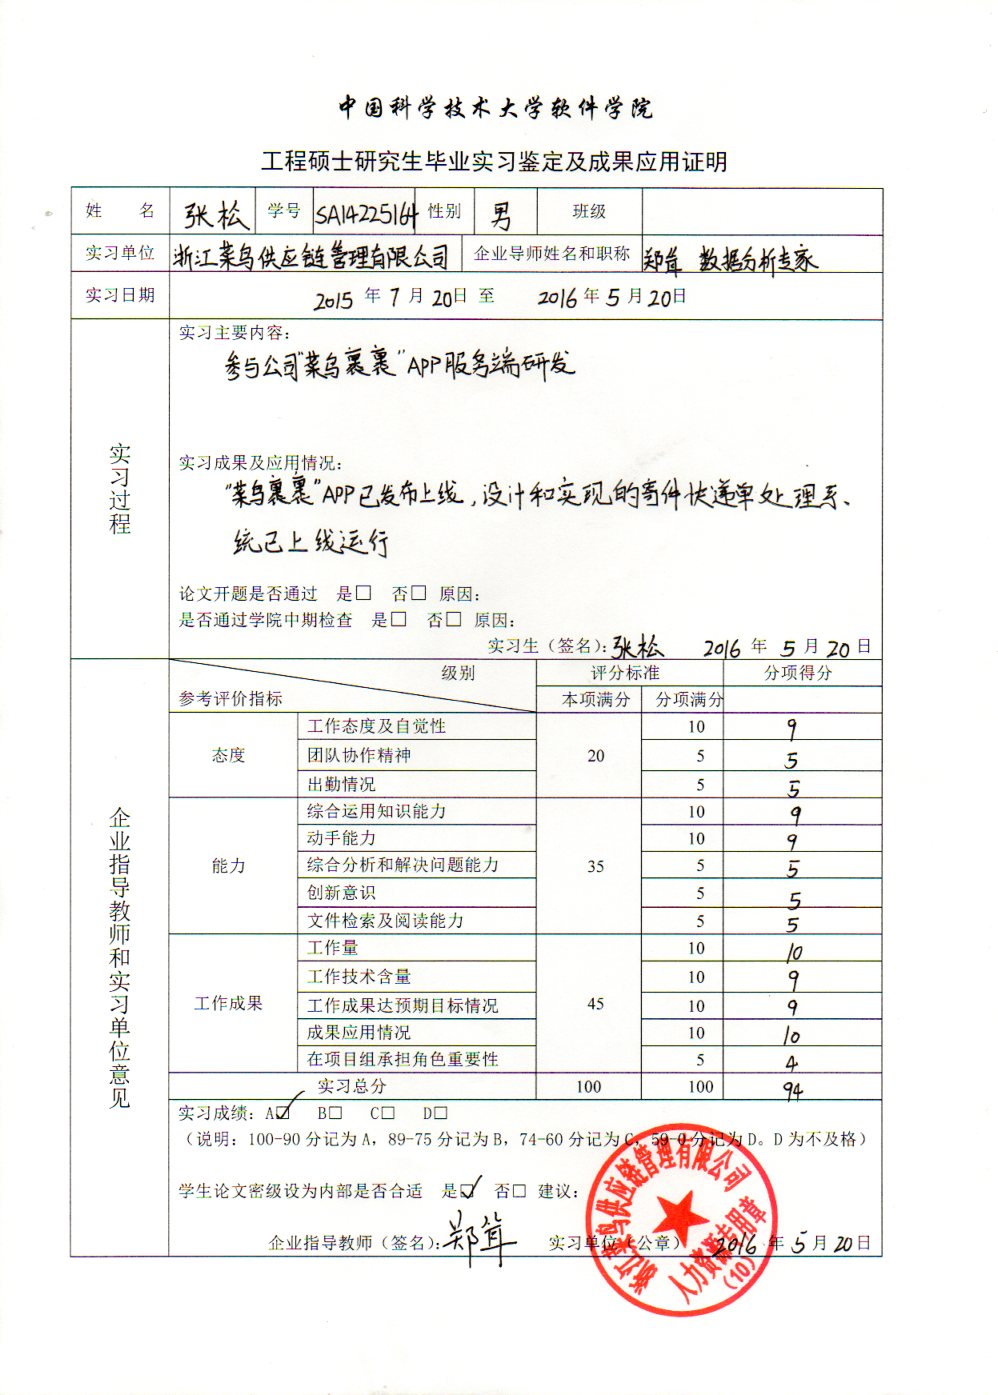 中国科学技术大学软件学院
工程硕士研究生毕业实习鉴定及成果应用证明
姓 名 张松 学号 SA14225164 性别 男 班级
实习单位 浙江菜鸟供应链管理有限公司 企业导师姓名和职称 郑茸 数据分析专家
实习日期 2015 年 7 月 20日 至 2016 年 5 月 20日
实习过程
实习主要内容：
参与公司“菜鸟裹裹”APP服务端研发
实习成果及应用情况：
“菜鸟裹裹”APP已发布上线，设计和实现的寄件快递单处理系
统已上线运行
论文开题是否通过 是□ 否□ 原因：
是否通过学院中期检查 是□ 否□ 原因：
实习生（签名）：张松 2016 年 5 月 20 日
企业指导教师和实习单位意见
级别 评分标准 分项得分
参考评价指标 本项满分 分项满分
态度 20
工作态度及自觉性 10 9
团队协作精神 5 5
出勤情况 5 5
能力 35
综合运用知识能力 10 9
动手能力 10 9
综合分析和解决问题能力 5 5
创新意识 5 5
文件检索及阅读能力 5 5
工作成果 45
工作量 10 10
工作技术含量 10 9
工作成果达预期目标情况 10 9
成果应用情况 10 10
在项目组承担角色重要性 5 4
实习总分 100 100 94
实习成绩：A☑ B□ C□ D□
（说明：100-90分记为A，89-75分记为B，74-60分记为C，59-0分记为D。D为不及格）
学生论文密级设为内部是否合适 是☑ 否□ 建议：
企业指导教师（签名）：郑茸 实习单位（公章） 2016 年 5 月 20 日
浙江菜鸟供应链管理有限公司
人力资源专用章
（10）